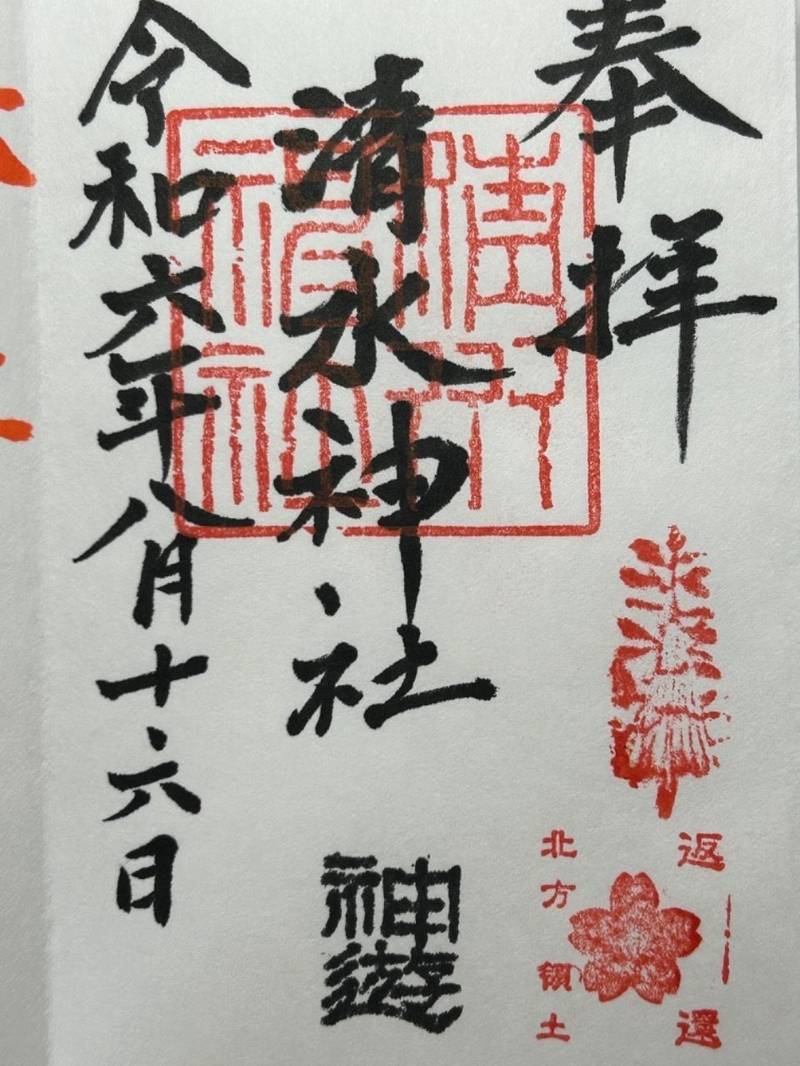 奉拝
清水神社
神遊
令和六年八月十六日
返還
北方領土